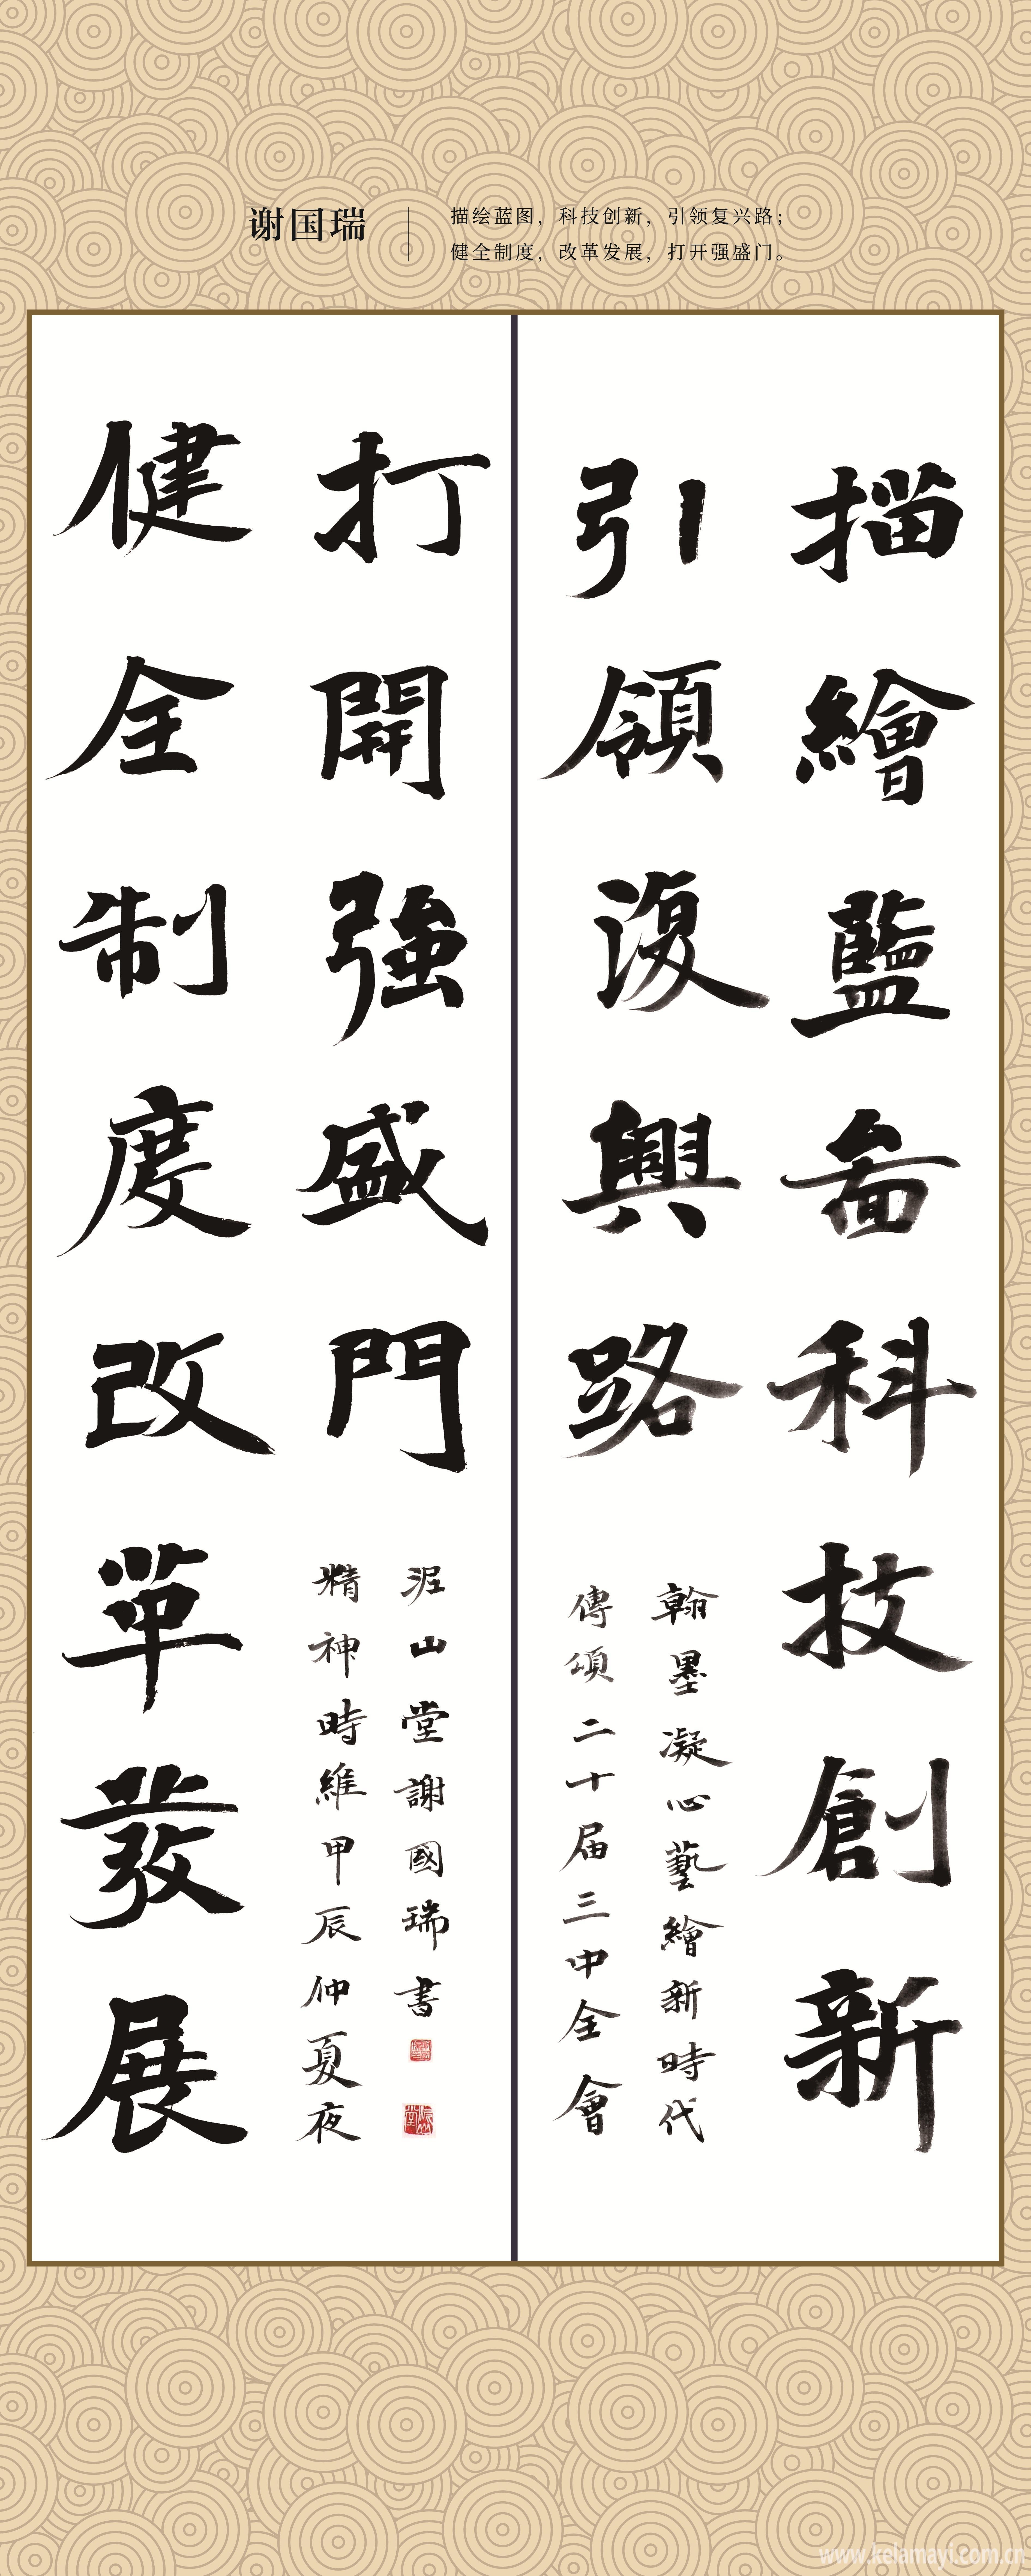 谢国瑞
描绘蓝图，科技创新，引领复兴路；
健全制度，改革发展，打开强盛门。
描繪藍啚科技創新
引領復興路
翰墨凝心藝繪新時代
傳頌二十届三中全會
健全制度改革發展
打開強盛門
精神時維甲辰仲夏夜
泥山堂謝國瑞書
www.kelamayi.com.cn